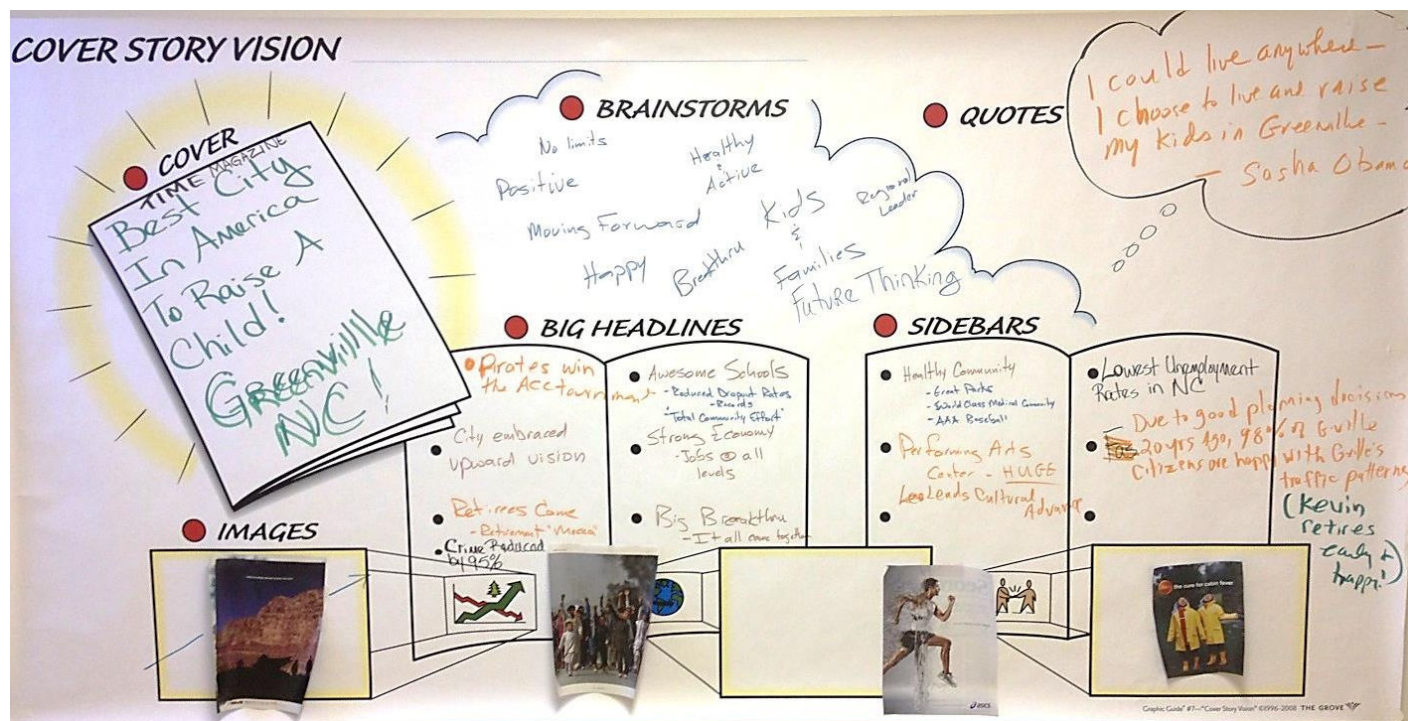 COVER STORY VISION
COVER
TIME MAGAZINE
Best City
In America
To Raise A
Child!
Greenville
NC!
BRAINSTORMS
No limits
Healthy
&
Active
Positive
Moving Forward
Kids
&
Families
Regional
Leader
Happy
Breakthru
Future Thinking
QUOTES
I could live anywhere -
I choose to live and raise
my kids in Greenville -
- Sasha Obama
BIG HEADLINES
Pirates win
the ACC tournament
City embraced
upward vision
Retirees Come
- Retirement "Mecca"
Crime Reduced
by 95%
Awesome Schools
- Reduced Dropout Rates
- Records
"Total Community Effort"
Strong Economy
- Jobs @ all
levels
Big Breakthru
- It all came together
SIDEBARS
Healthy Community
- Great Parks
- World Class Medical Community
- AAA Baseball
Performing Arts
Center - HUGE
Leads Cultural
Advance
Lowest Unemployment
Rates in NC
- Due to good planning decisions
20 yrs ago, 98% of G-ville
Citizens are happy with G-ville's
traffic patterns
(Kevin
retires
early &
happy!)
IMAGES
the cure for cabin fever
asics
Graphic Guide® #7—"Cover Story Vision" ©1996-2008 THE GROVE